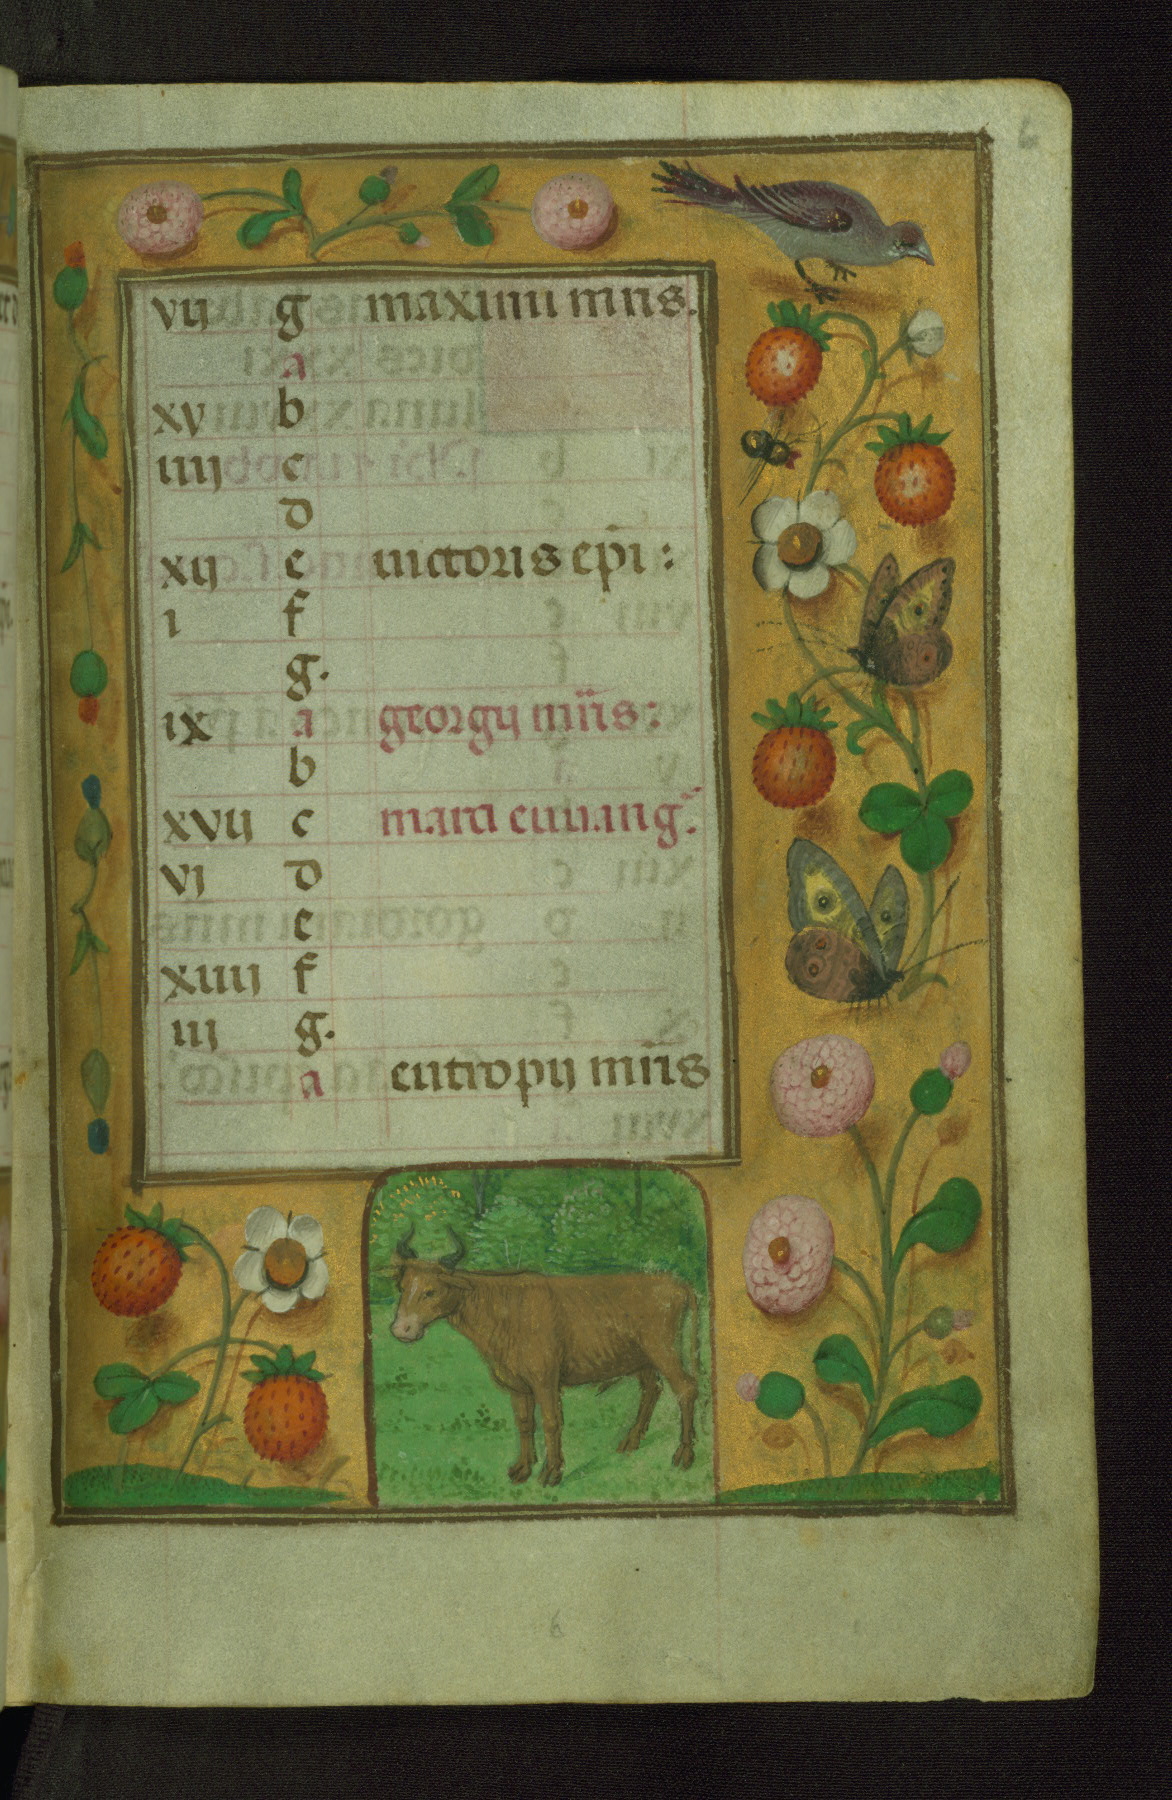 vij g maximi mris.
a
xv b
iiij c
d
xij e victoris epi:
i f
g.
ix a georgij mris:
b
xvij c marci euuang.
vj d
e
xiiij f
iij g.
a eutropij mris
6
6